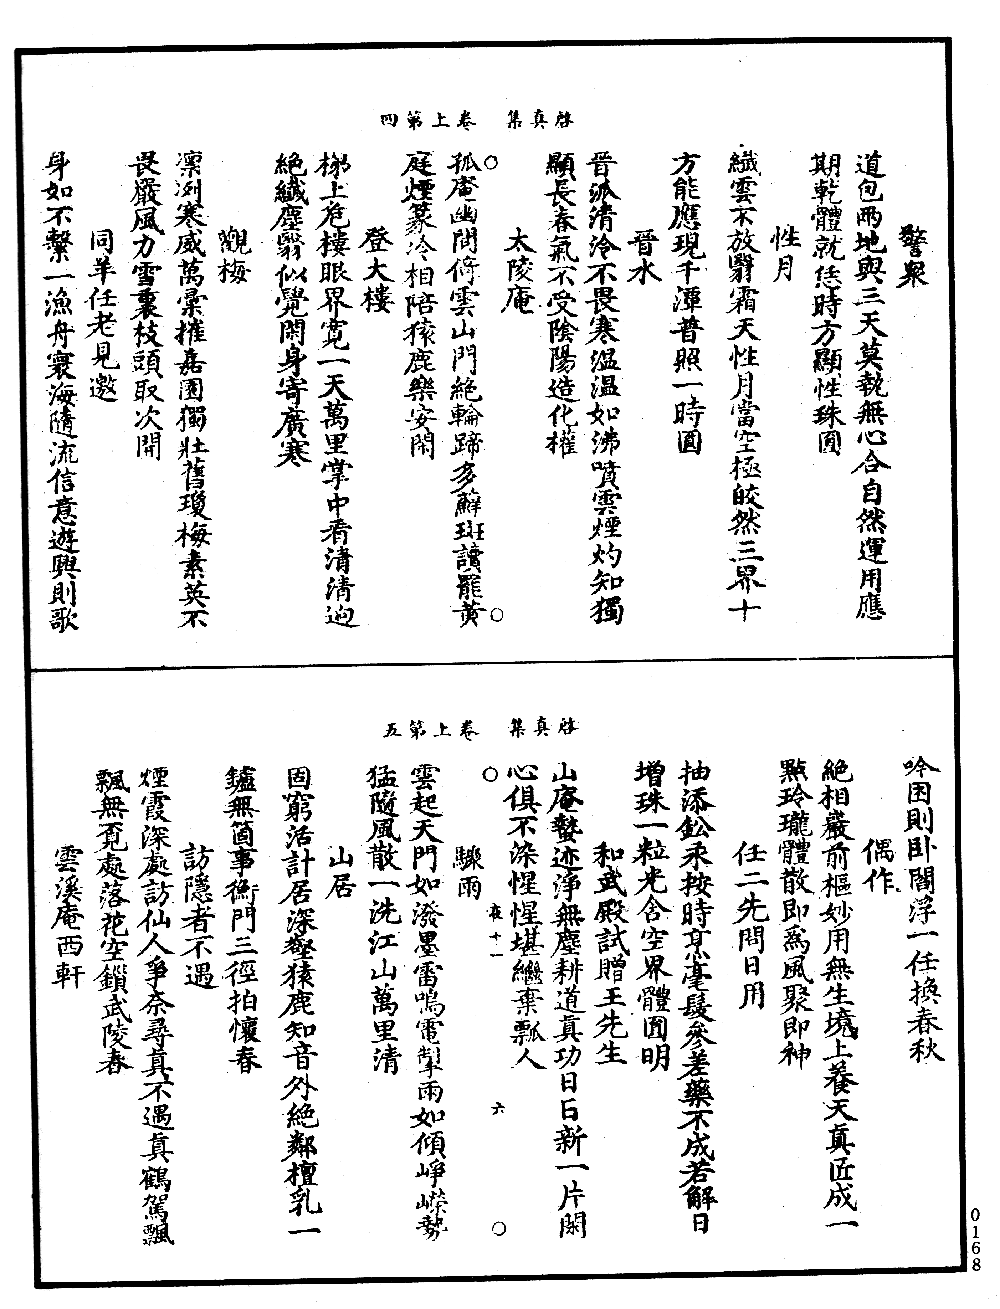 啓真集　卷上第四
警衆
道包兩地與三天莫執無心合自然運用應
期乾體就恁時方顯性珠圓
性月
纖雲不放翳霜天性月當空極皎然三界十
方能應現千潭普照一時圓
晉水
晉派清泠不畏寒溫溫如沸噴雲煙灼知獨
顯長春氣不受陰陽造化權
太陵庵
○孤庵幽間倚雲山門絕輪蹄多蘚斑讀罷黃○
庭煙篆冷相陪猿鹿樂安閑
登大樓
梯上危樓眼界寬一天萬里掌中看清清迥
絕纖塵翳似覺閑身寄廣寒
觀梅
凜冽寒威萬彙摧嘉園獨壯舊瓊梅素英不
畏嚴風力雪裏枝頭取次開
同羊任老見邀
身如不繫一漁舟寰海隨流信意遊興則歌
啓真集　卷上第五
吟困則臥閻浮一任換春秋
偶作
絕相巖前樞妙用無生境上養天真匠成一
點玲瓏體散即爲風聚即神
任二先問日用
抽添鈆汞按時烹毫髮參差藥不成若解日
增珠一粒光含空界體圓明
和武殿試贈王先生
山庵槷迹淨無塵耕道真功日日新一片閑
心俱不染惺惺堪繼棄瓢人
○　夜十一　六　○
驟雨
雲起天門如潑墨雷鳴電掣雨如傾崢嶸勢
猛隨風散一洗江山萬里清
山居
固窮活計居深壑猿鹿知音外絕鄰檀乳一
鑪無箇事衡門三徑拍懷春
訪隱者不遇
煙霞深處訪仙人爭奈尋真不遇真鶴駕飄
飄無覓處落花空鎖武陵春
雲溪庵西軒
0168